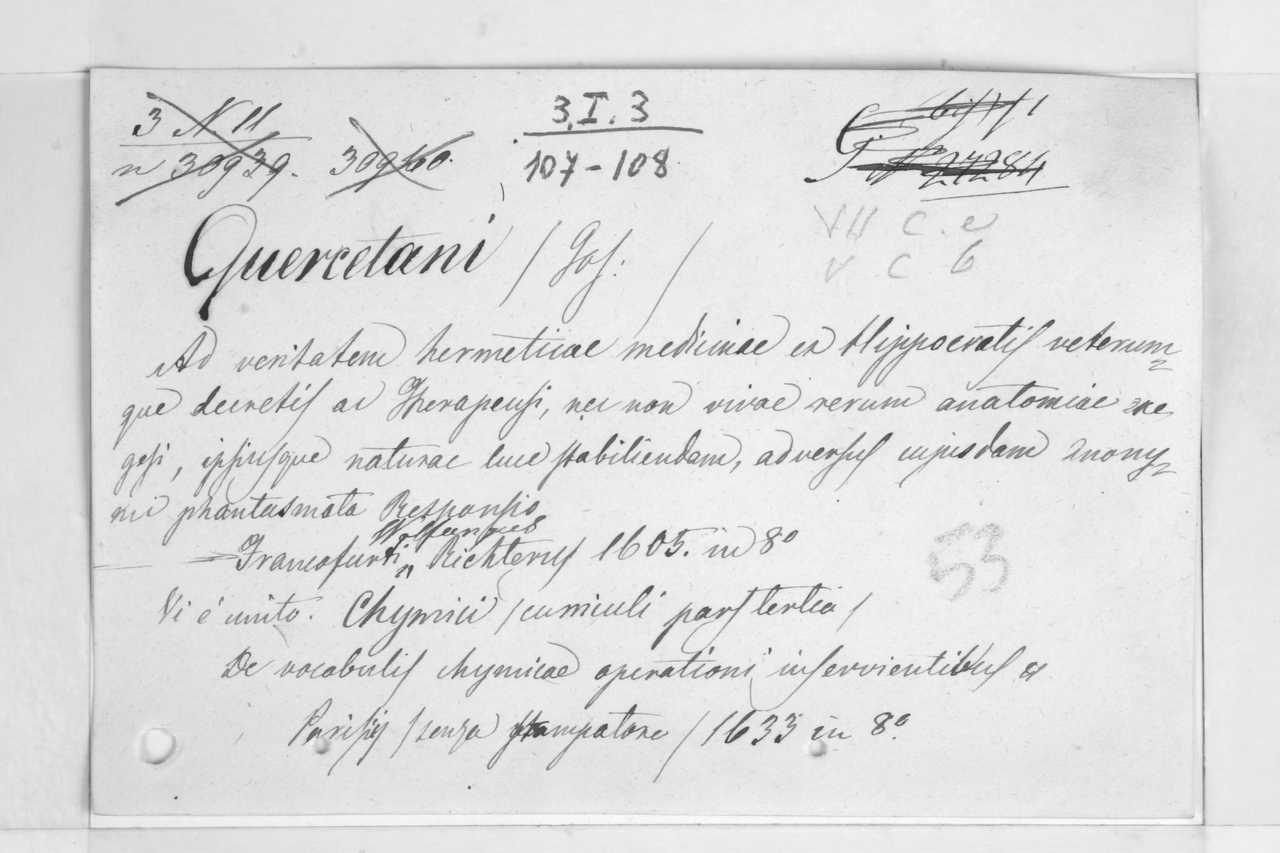 3 N 11
n 30939. 30940.
3.I.3
107-108
27284
VII C. e
V C 6
Quercetani / Jos: /
Ad veritatem hermeticae medicinae ex Hippocratis veterum=
que decretis ac Therapeusi, nec non vivae rerum anatomiae exe
gesi, ipsiusque naturae luce stabiliendam, adversus cujusdam anony=
mi phantasmata Responsio
Wolfangus
= Francofurti Richterus 1605. in 8º
Vi é unito. Chymici / cuniculi pars tertia /
De vocabulis chymicae operationi inservientibus &
Parisijs / senza stampatore / 1633 in 8.º
53